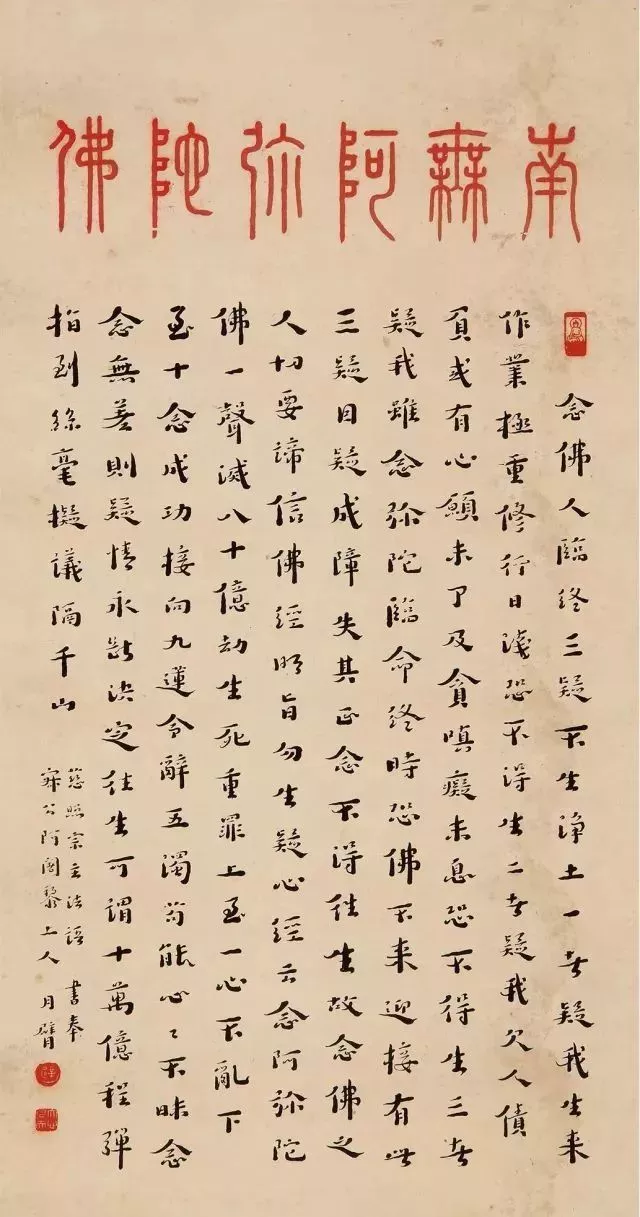 南無阿弥陀佛
念佛人臨終三疑不生淨土一者疑我生來
作業極重修行日淺恐不得生二者疑我欠人債
負或有心願未了及貪嗔癡未息恐不得生三者
疑我雖念弥陀臨命終時恐佛不来迎接有此
三疑因疑成障失其正念不得往生故念佛之
人切要諦信佛經明旨勿生疑心經云念阿弥陀
佛一聲滅八十億劫生死重罪上至一心不亂下
至十念成功接向九蓮令辭五濁苟能心〻不昧念
念無差則疑情永斷決定往生可謂十萬億程彈
指到絲毫擬議隔千山
慈照宗主法語 書奉
寂公阿闍黎上人 月臂